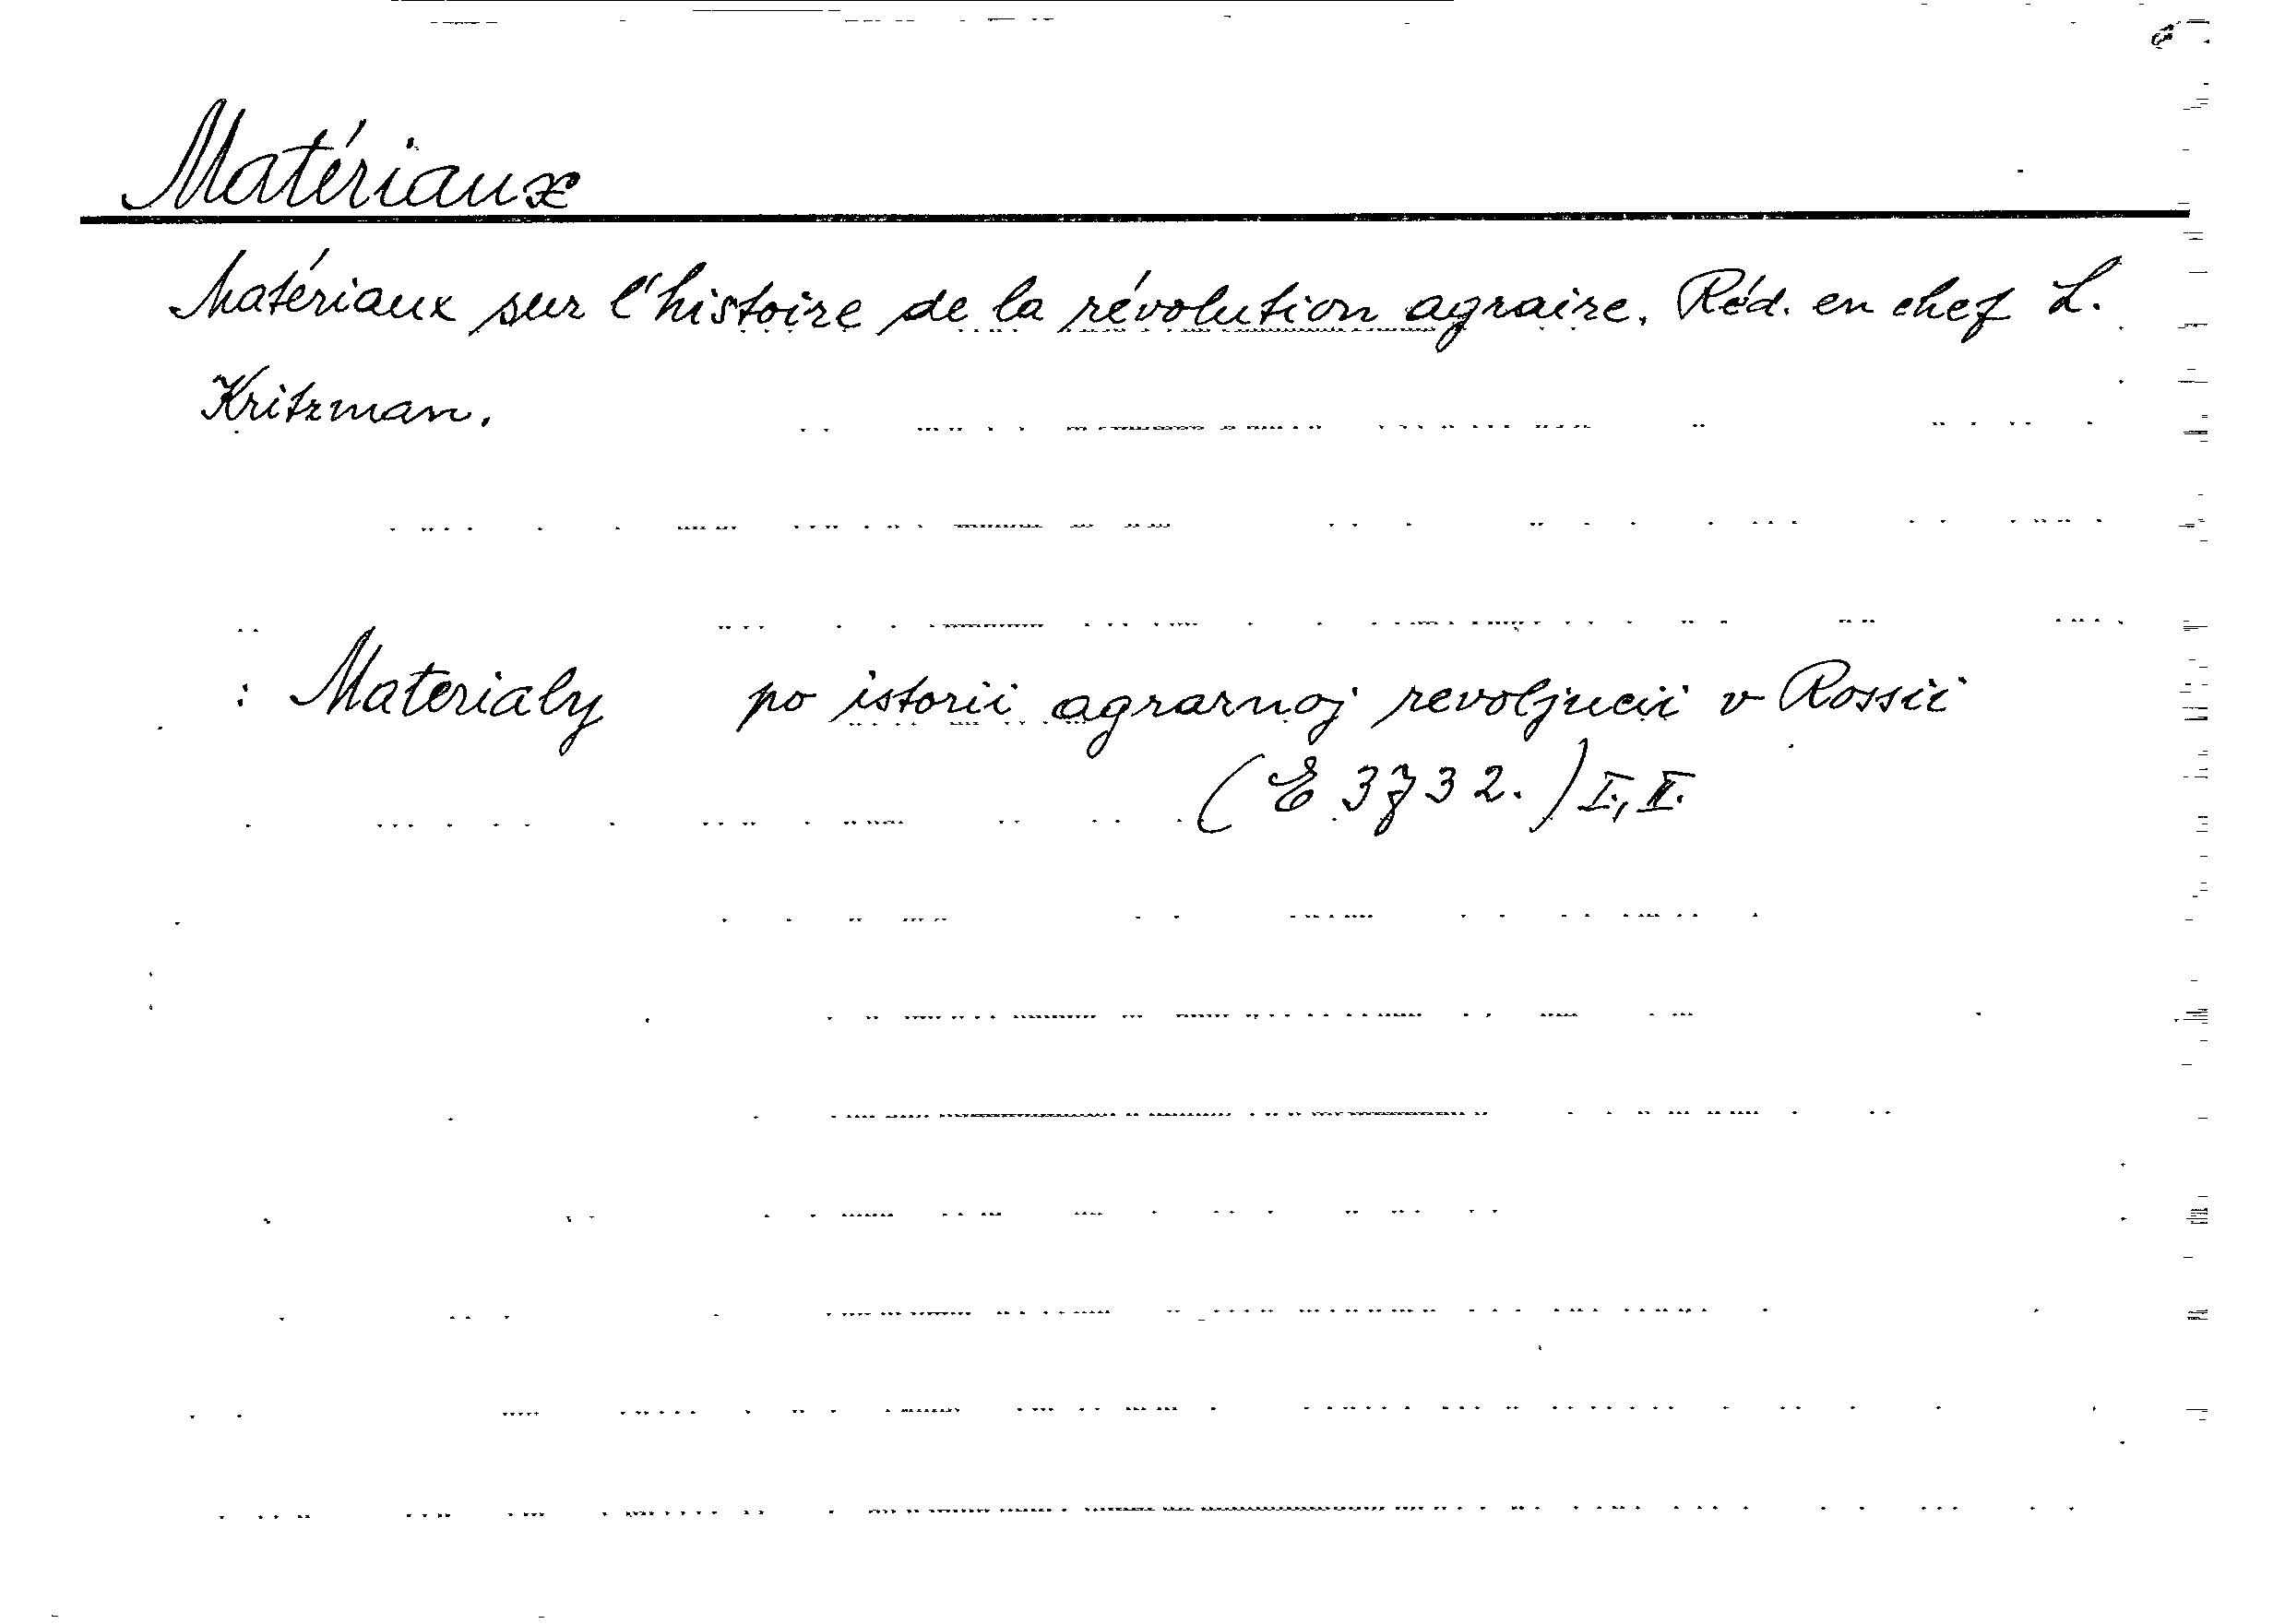 Matériaux
Matériaux sur l'histoire de la révolution agraire. Réd. en chef L.
Kritzman.
: Materialy po istorii agrarnoj revoljucii v Rossii
(E 3732.) I., II.